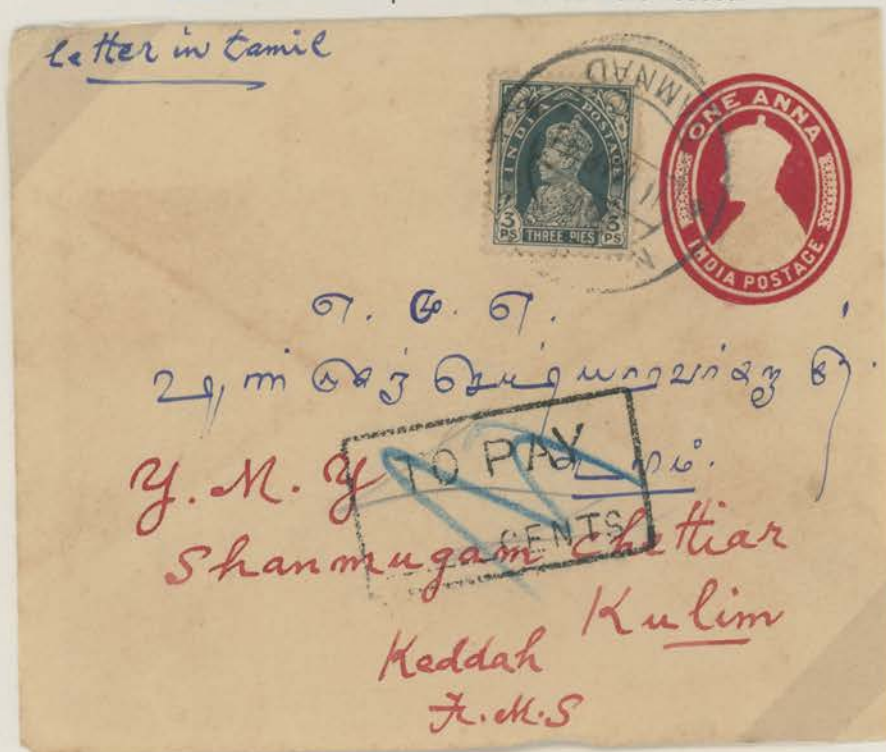 letter in tamil
RAMNAD
INDIA POSTAGE
3 PS THREE PIES 3 PS
ONE ANNA
INDIA POSTAGE
எ. மு. எ.
Y. M. Y
TO PAY
CENTS
Shanmugam Chettiar
Kulim
Keddah
F.M.S